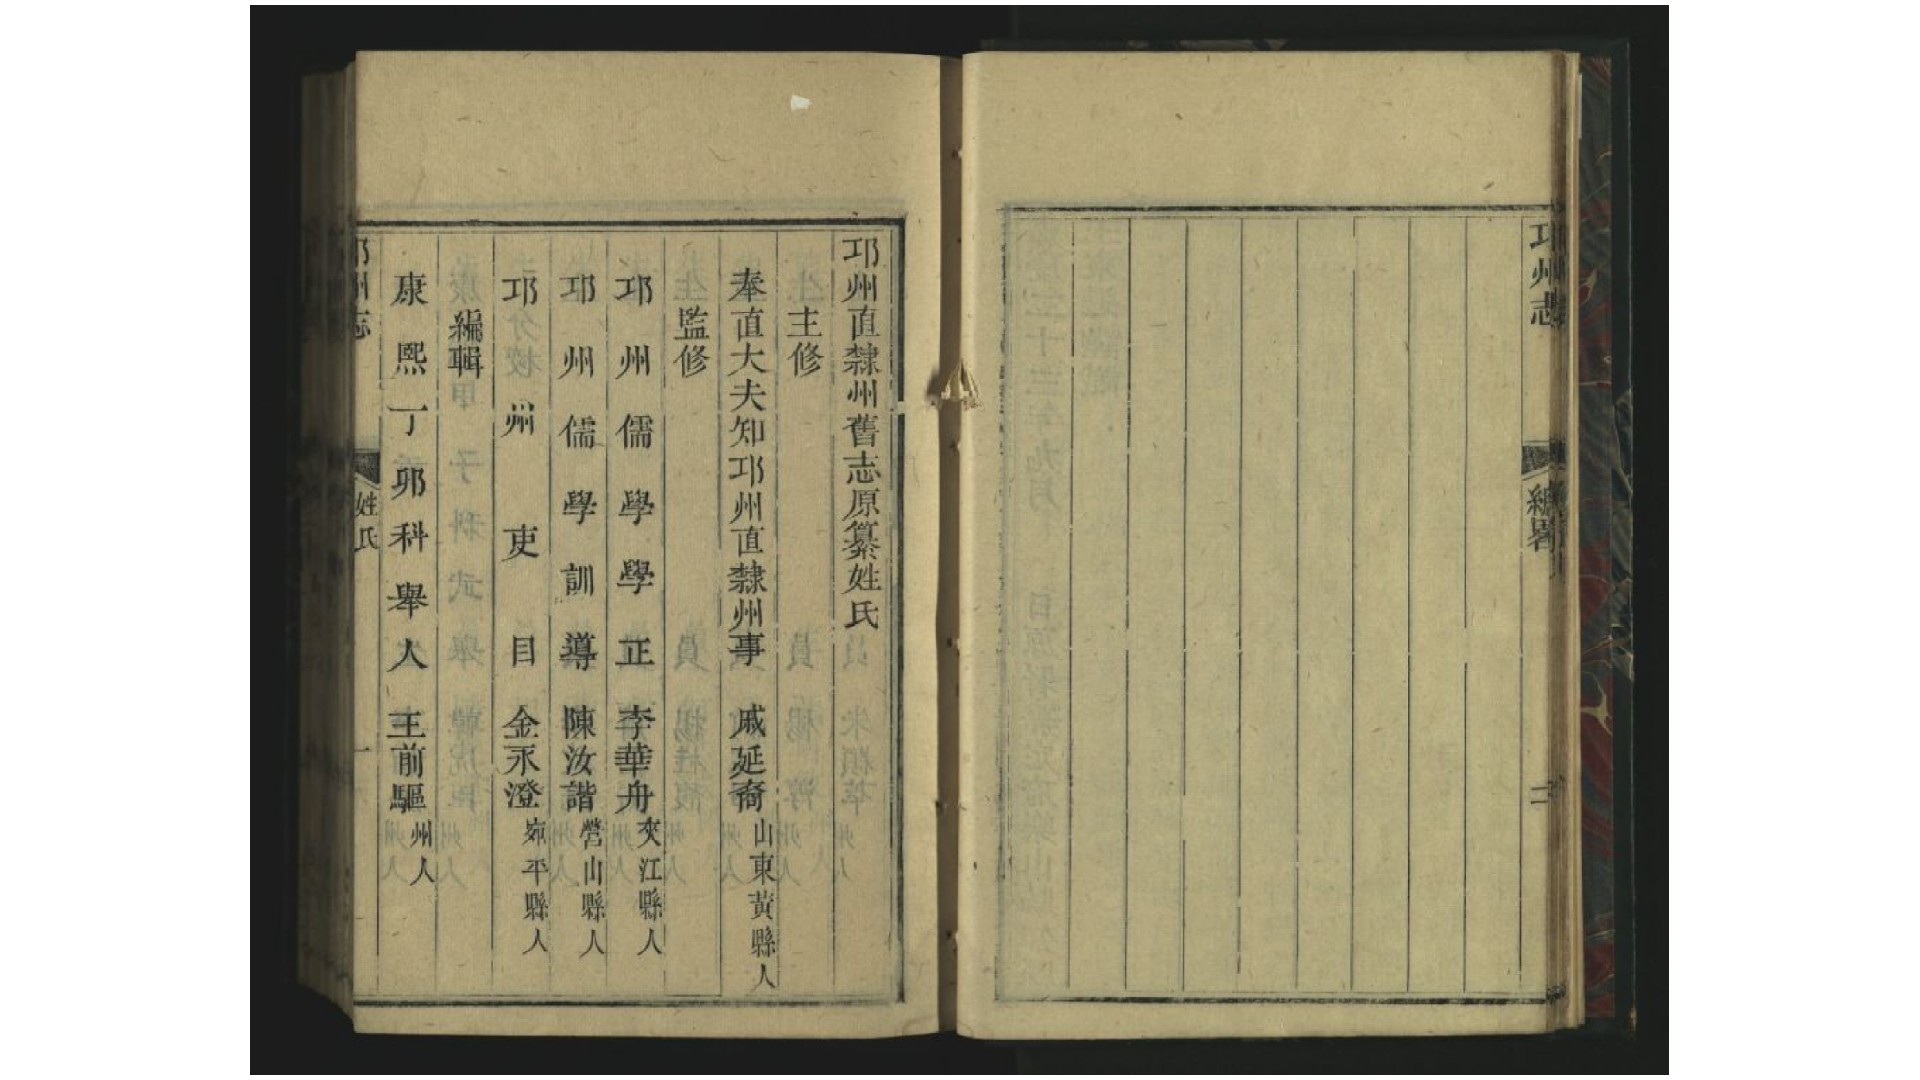 邛州志
編畧
二
邛州直隸州舊志原纂姓氏
主修
奉直大夫知邛州直隸州事 戚延裔 山東黃縣人
監修
邛州儒學學正 李華舟 夾江縣人
邛州儒學訓導 陳汝諧 營山縣人
邛州吏目 金永澄 宛平縣人
編輯
康熙丁卯科舉人 王前驅 州人
邛州志
姓氏
一